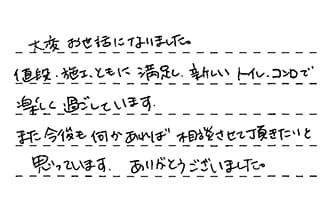 大変お世話になりました。
値段・施工ともに満足し、新しいトイレ・コンロで
楽しく過ごしています。
また今後も何かあれば相談させて頂きたいと
思っています。ありがとうございました。